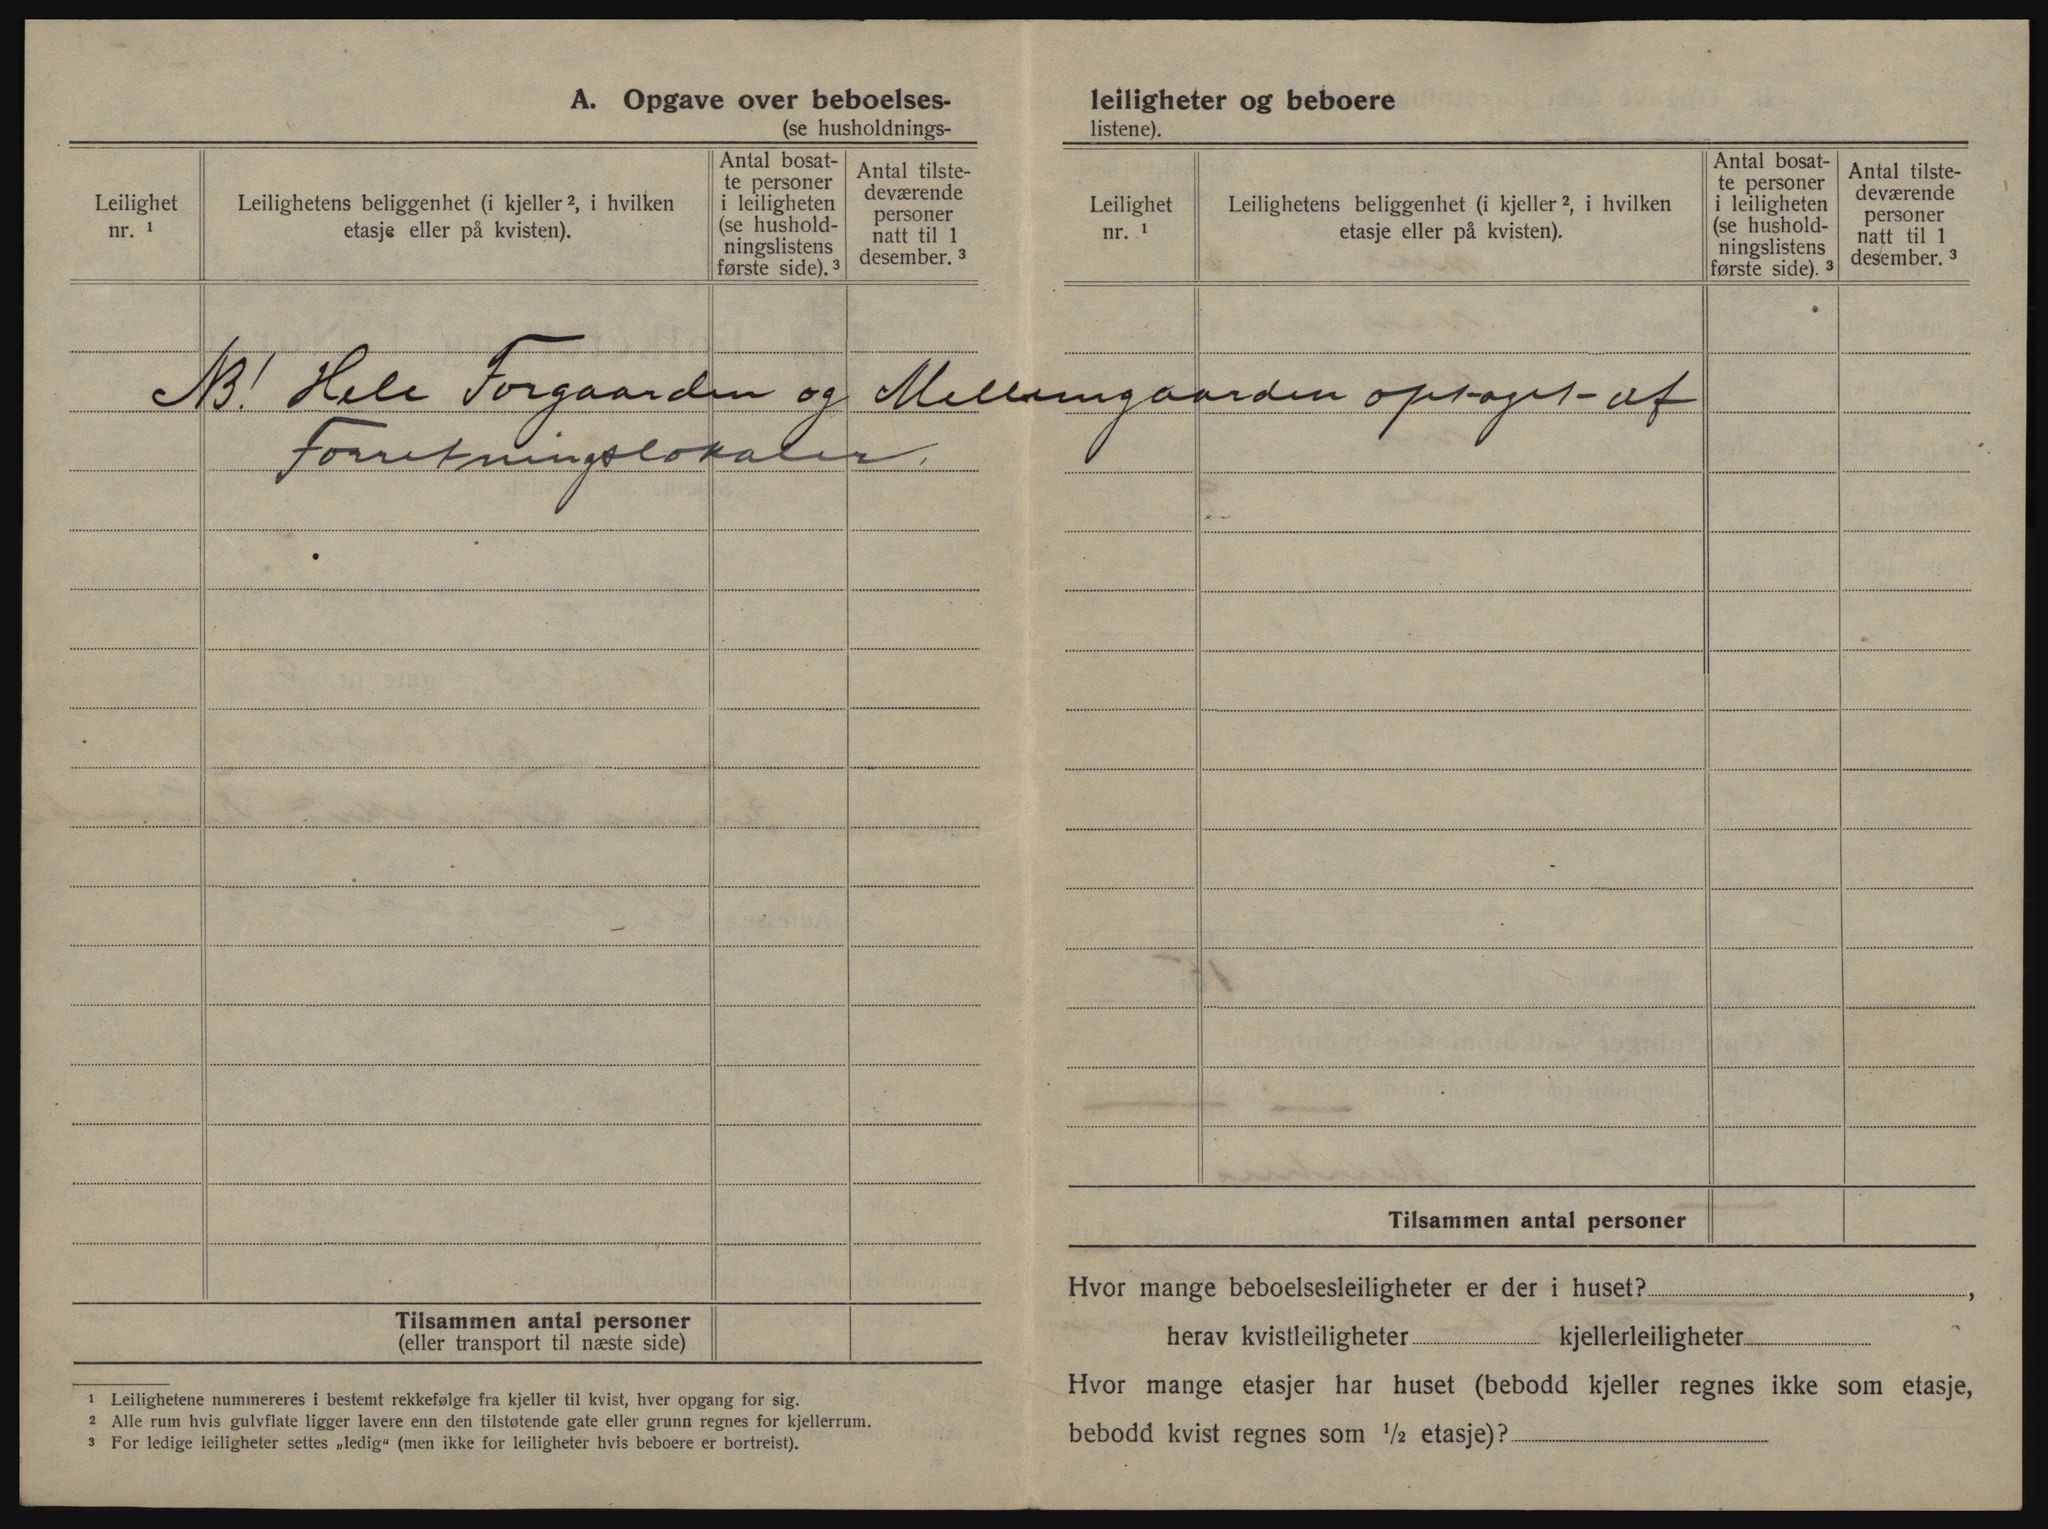 A. Opgave over beboelses-
(se husholdnings-
Leilighet
nr. ¹
Leilighetens beliggenhet (i kjeller ², i hvilken
etasje eller på kvisten).
Antal bosat-
te personer
i leiligheten
(se hushold-
ningslistens
første side). ³
Antal tilste-
deværende
personer
natt til 1
desember. ³
NB! Hele Forgaarden og Mellemgaarden optaget af
Forretningslokaler.
Tilsammen antal personer
(eller transport til næste side)
¹ Leilighetene nummereres i bestemt rekkefølge fra kjeller til kvist, hver opgang for sig.
² Alle rum hvis gulvflate ligger lavere enn den tilstøtende gate eller grunn regnes for kjellerrum.
³ For ledige leiligheter settes „ledig“ (men ikke for leiligheter hvis beboere er bortreist).
leiligheter og beboere
listene).
Leilighet
nr. ¹
Leilighetens beliggenhet (i kjeller ², i hvilken
etasje eller på kvisten).
Antal bosat-
te personer
i leiligheten
(se hushold-
ningslistens
første side). ³
Antal tilste-
deværende
personer
natt til 1
desember. ³
Tilsammen antal personer
Hvor mange beboelsesleiligheter er der i huset? ,
herav kvistleiligheter kjellerleiligheter
Hvor mange etasjer har huset (bebodd kjeller regnes ikke som etasje,
bebodd kvist regnes som ½ etasje)?